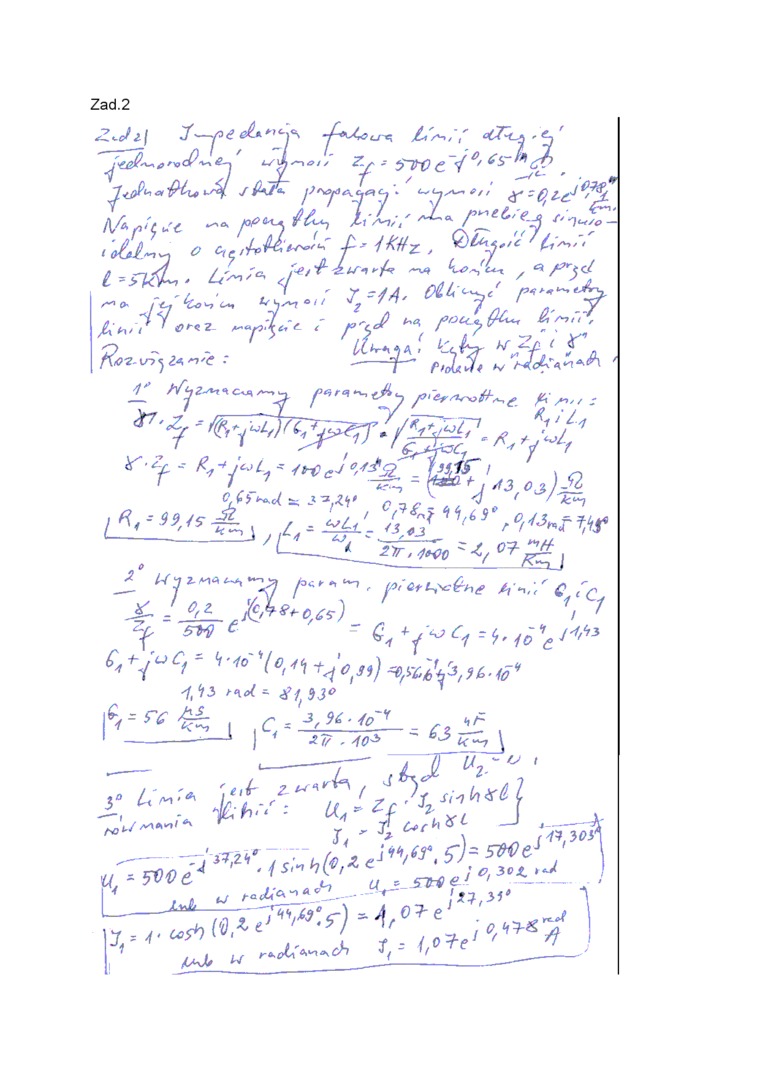 Zad.2
Zad 2| Impedancja falowa linii długiej
jednorodnej wynosi Zf = 500e^-j0,65 Ω.
Jednostkowa stała propagacji wynosi γ = 0,2e^j0,78 1/km.
Napięcie na początku linii ma przebieg sinuso-
idalny o częstotliwości f = 1KHz. Długość linii
l = 5km. Linia jest zwarta na końcu, a prąd
na jej końcu wynosi I2 = 1A. Obliczyć parametry
linii oraz napięcie i prąd na początku linii.
Uwaga! Kąty w Zf i γ
podane w radianach.
Rozwiązanie:
1° Wyznaczamy parametry pierwotne linii: R1 i L1
γ · Zf = √(R1+jωL1)(G1+jωC1) · √(R1+jωL1)/(G1+jωC1) = R1+jωL1
γ · Zf = R1+jωL1 = 100e^j0,13 Ω/km = (99,15 + j 13,03) Ω/km
0,65 rad = 37,24°, 0,78rad = 44,69°, 0,13rad = 7,45°
R1 = 99,15 Ω/km, L1 = ωL1/ω = 13,03/(2π·1000) = 2,07 mH/Km
2° Wyznaczamy param. pierwotne linii G1 i C1
γ/Zf = 0,2/500 e^j(0,78+0,65) = G1+jωC1 = 4·10^-4 e^j1,43
G1+jωC1 = 4·10^-4(0,14+j0,99) = 0,56·10^-4+j3,96·10^-4
1,43 rad = 81,93°
G1 = 56 μS/km C1 = 3,96·10^-4/(2π·10^3) = 63 nF/km
3° Linia jest zwarta, stąd U2=0,
równania linii: U1 = Zf · I2 sinhγl
I1 = I2 coshγl
U1 = 500e^-j37,24° · 1 sinh(0,2e^j44,69° · 5) = 500e^j17,303°
lub w radianach U1 = 500e^j0,302 rad
I1 = 1 · cosh(0,2e^j44,69° · 5) = 1,07e^j27,39°
lub w radianach I1 = 1,07e^j0,478 rad A